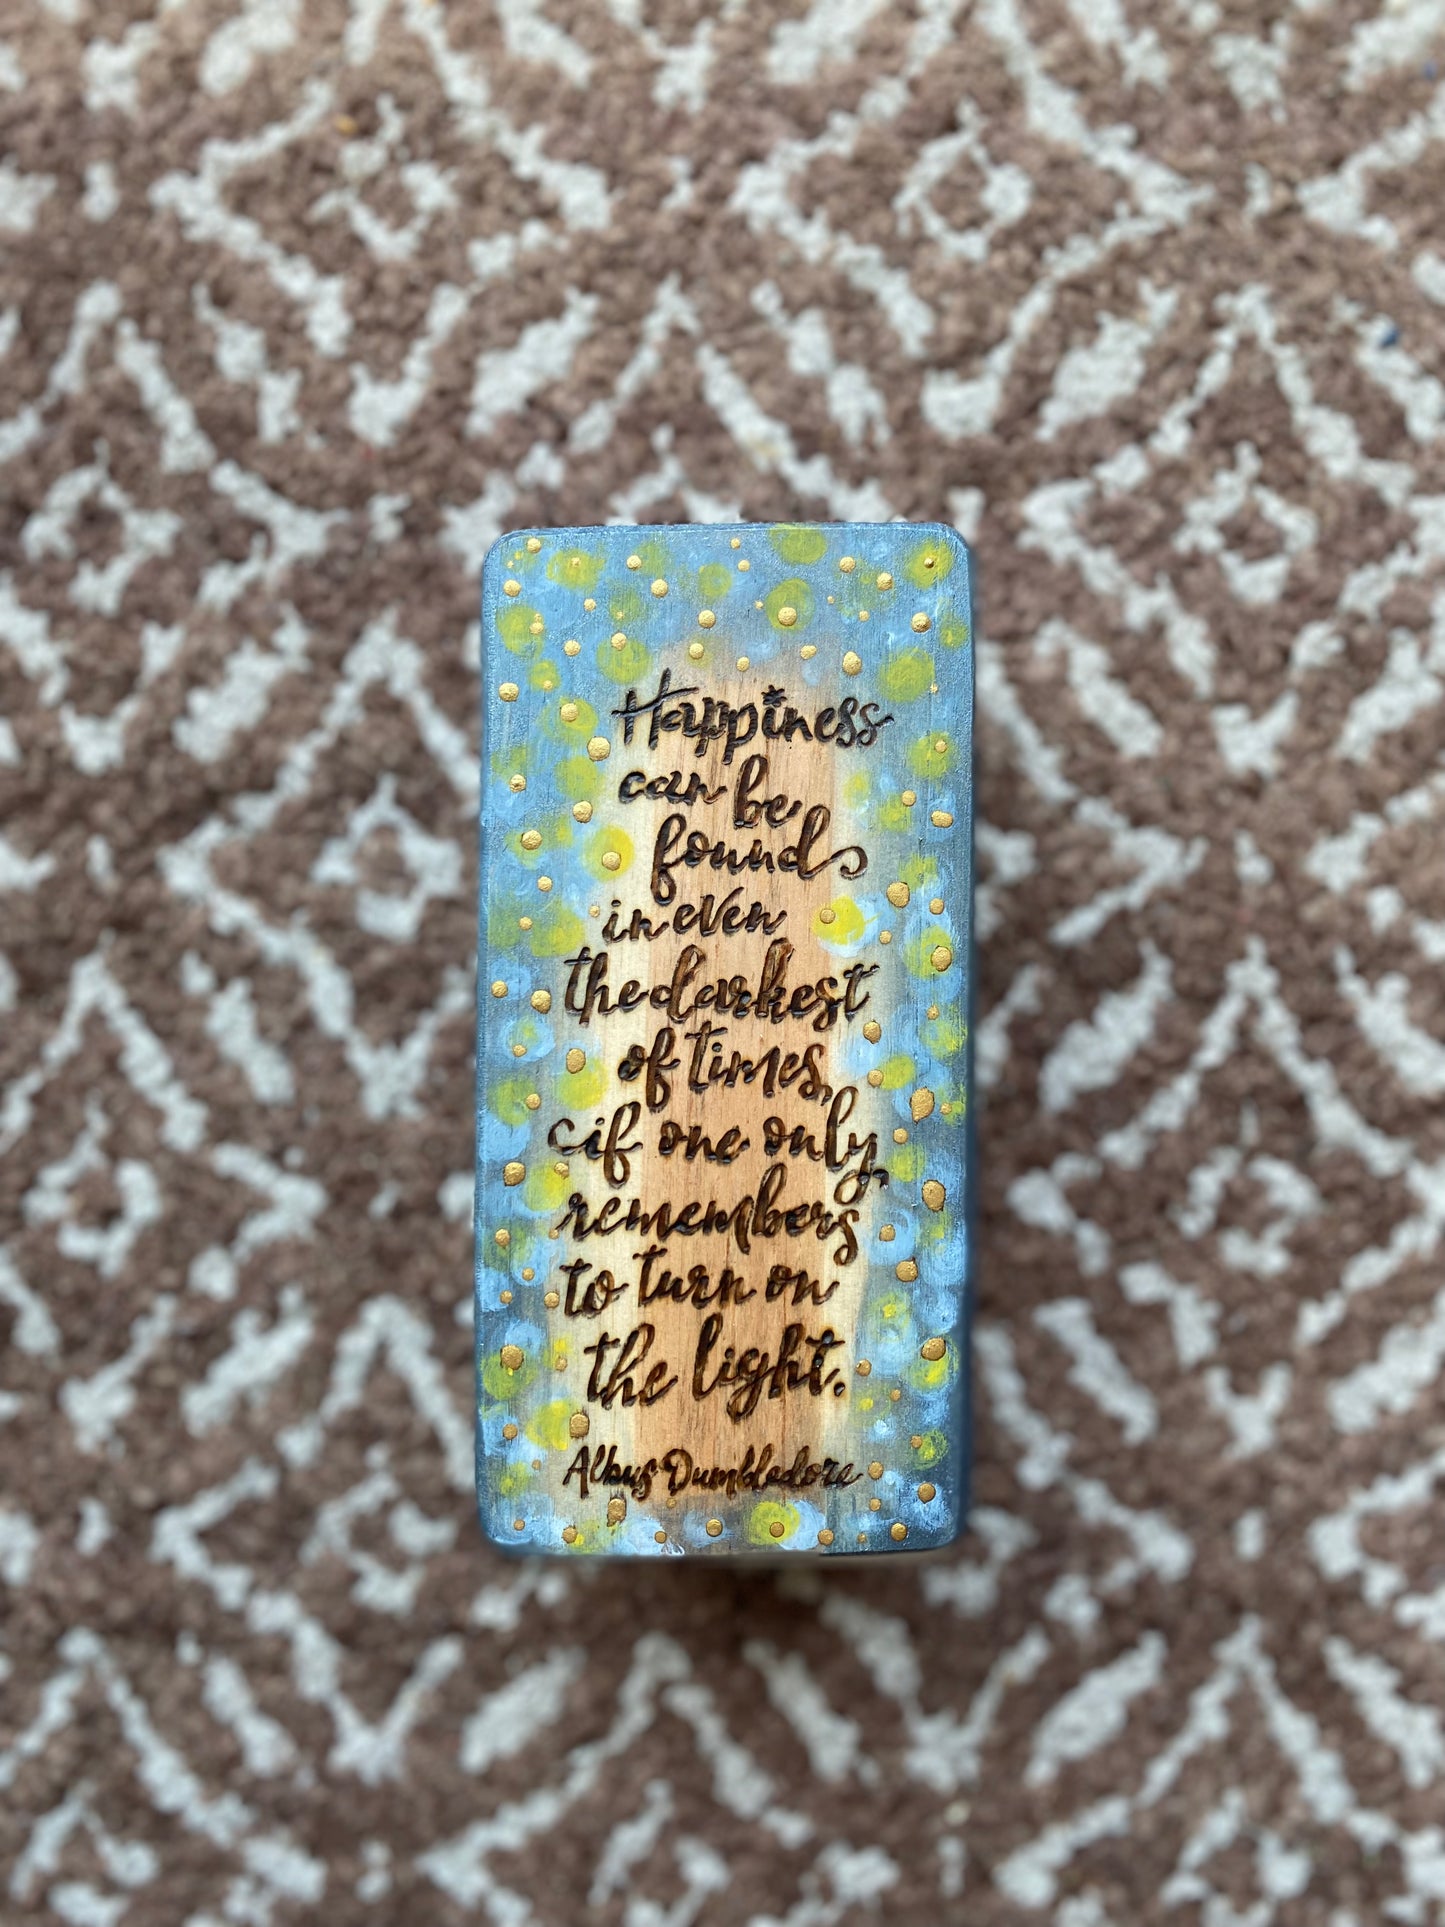 Happiness
can be
found
in even
the darkest
of times,
if one only
remembers
to turn on
the light.
Albus Dumbledore